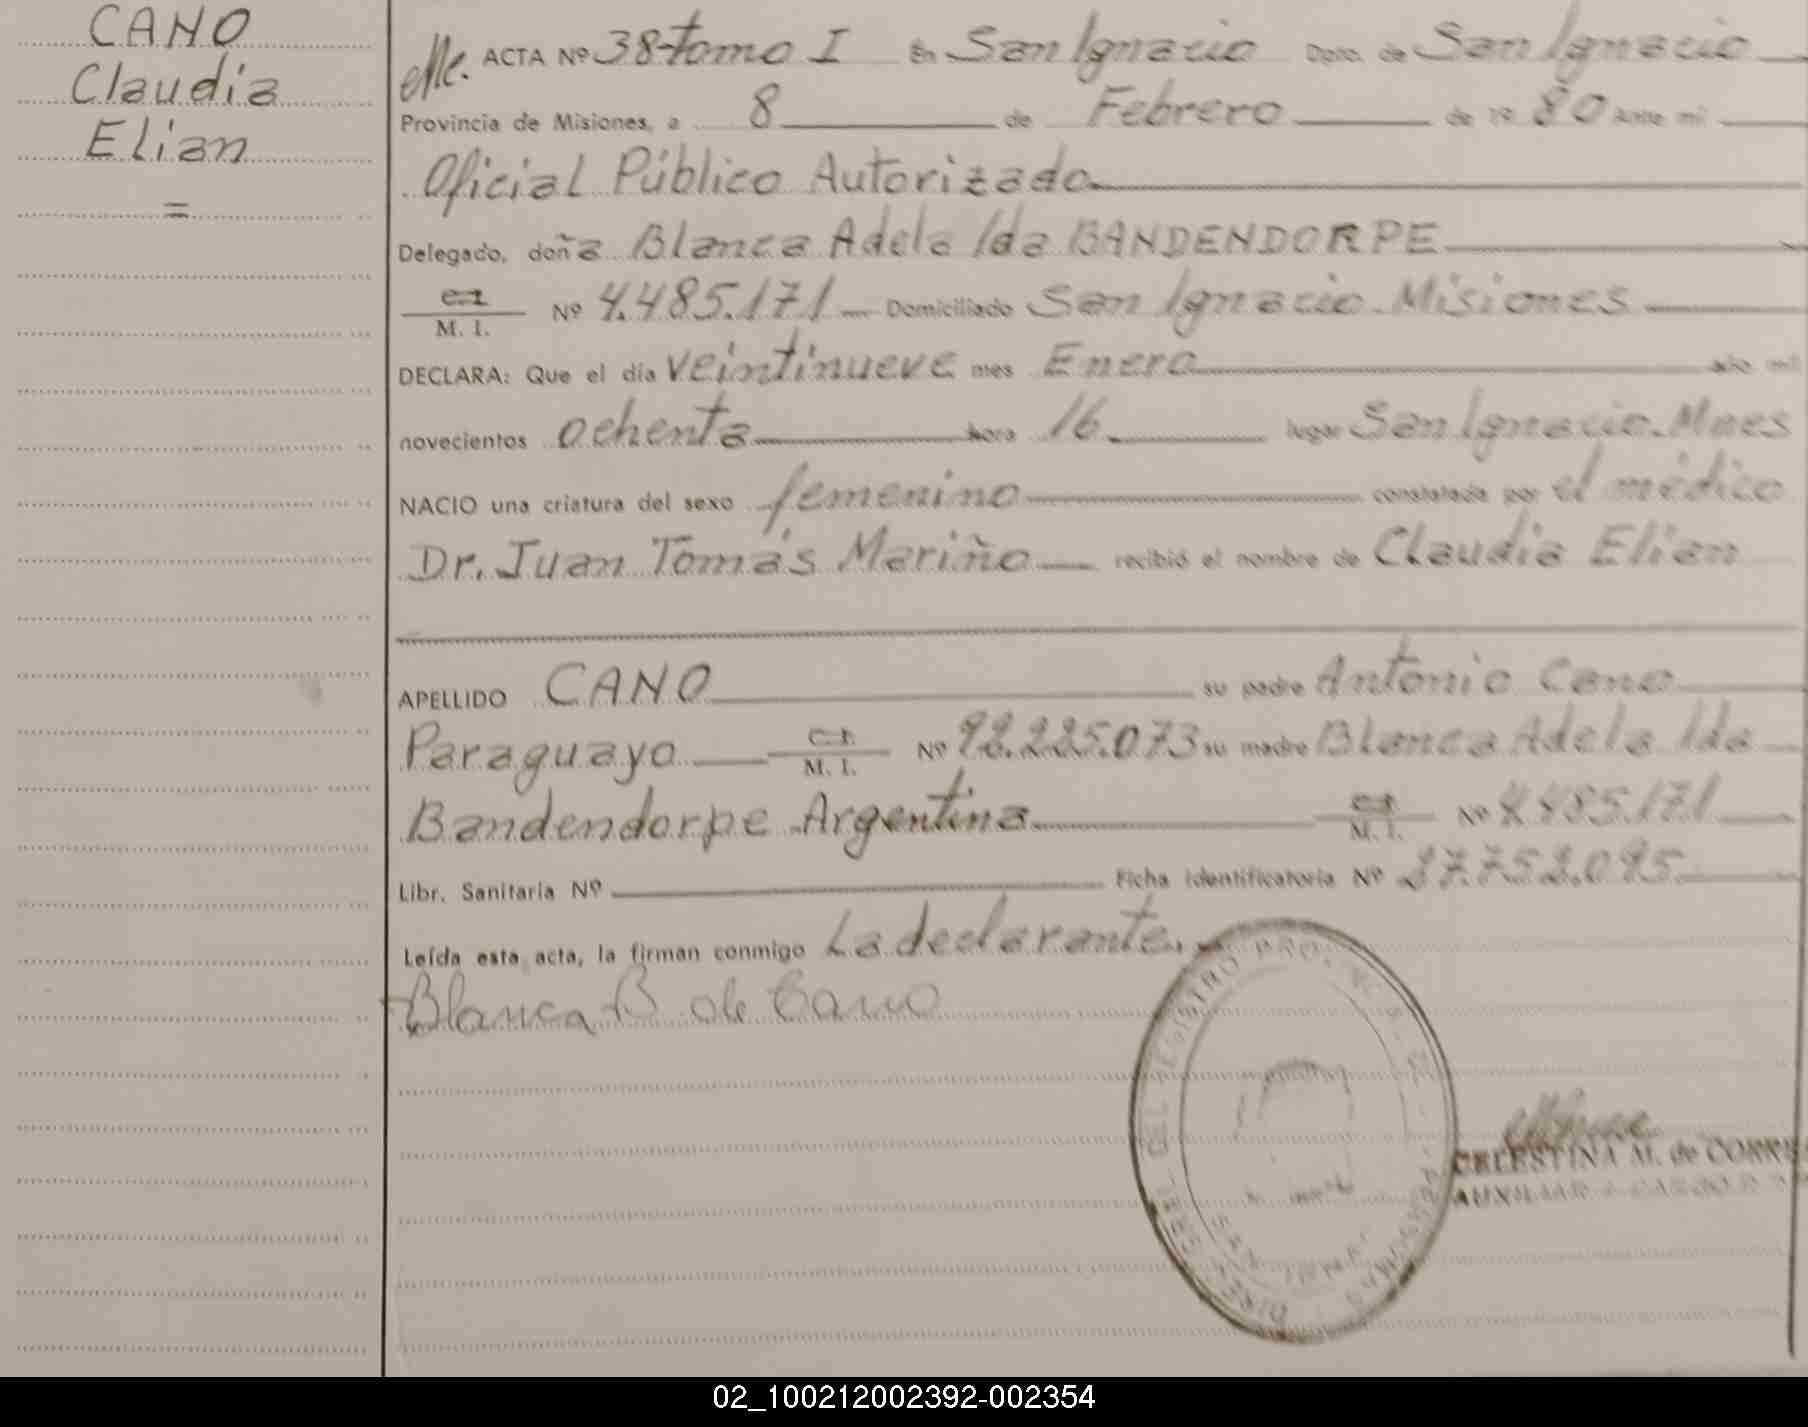 CANO
Claudia
Elian
=
ACTA Nº 38-tomo I En San Ignacio Dpto. de San Ignacio
Provincia de Misiones, a 8 de Febrero de 19 80 Ante mi
Oficial Público Autorizado
Delegado, doña Blanca Adela Ida BANDENDORPE
C.I.
M. I. Nº 4.485.171 Domiciliado San Ignacio. Misiones
DECLARA: Que el día veintinueve mes Enero año mil
novecientos ochenta hora 16 lugar San Ignacio. Mnes
NACIO una criatura del sexo femenino constatada por el médico
Dr. Juan Tomás Mariño recibió el nombre de Claudia Elian
APELLIDO CANO su padre Antonio Cano
Paraguayo C.I. M. I. Nº 92.225.073 su madre Blanca Adela Ida
Bandendorpe Argentina C.I. M. I. Nº 4.485.171
Libr. Sanitaria Nº Ficha identificatoria Nº 27.752.095
Leída esta acta, la firman conmigo La declarante.
Blanca B de Cano
CELESTINA M. de CORRE
AUXILIAR A CARGO
02_100212002392-002354